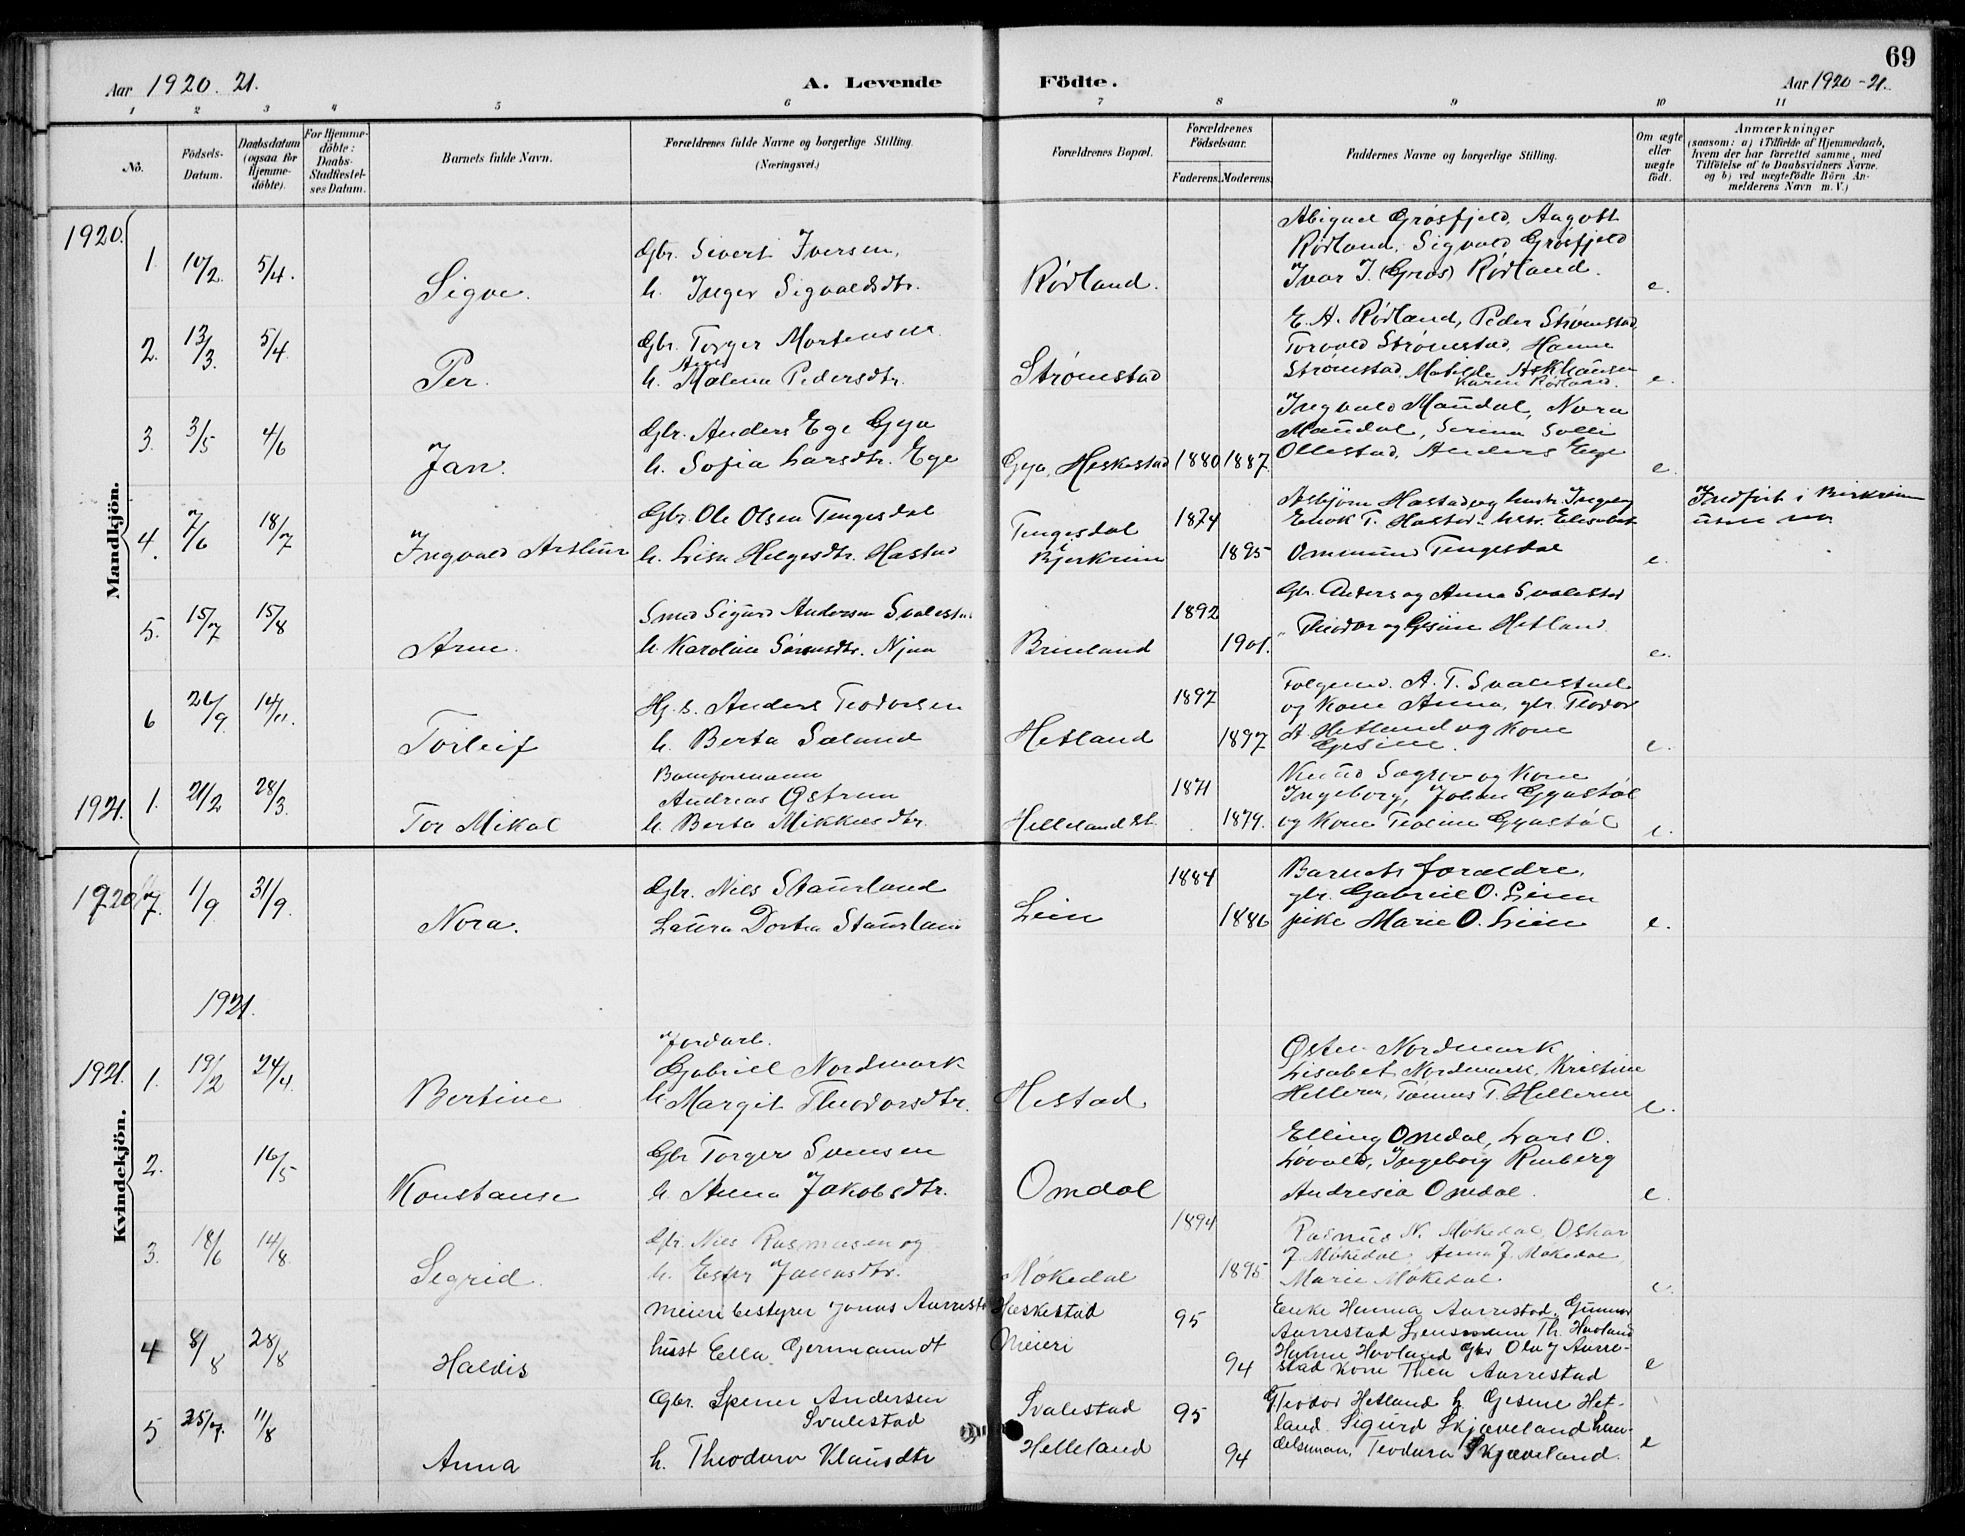 69
Aar 1920. 21.
A. Levende Födte.
Aar 1920-21.
1 2 3 4 5 6 7 8 9 10 11
No.
Födsels-Datum.
Daabsdatum (ogsaa for Hjemme-döbte).
For Hjemme-döbte: Daabs-Stadfæstel-ses Datum.
Barnets fulde Navn.
Forældrenes fulde Navne og borgerlige Stilling.
(Næringsvei.)
Forældrenes Bopæl.
Forældrenes Födselsaar.
Faderens. Moderens.
Faddernes Navne og borgerlige Stilling.
Om ægte eller uægte födt.
Anmærkninger
(saasom: a) i Tilfælde af Hjemmedaab,
hvem der har forrettet samme, med
Tilföielse af to Daabsvidners Navne.
og b) ved uægtefödte Börn An-
melderens Navn m. V.)
Mandkjön.
1920.
1. 10/2. 5/4.
Sigve.
Gbr. Sivert Iversen,
h. Inger Sigvaldsdtr.
Rødland.
Abigael Grøsfjeld, August
Rødland, Sigvald Grøsfjeld
Ivar I. (Grøs) Rødland.
e.
2. 13/3. 5/4.
Per.
Gbr. Torger Mortensen
h. Malena Pedersdtr.
Strømstad
E. A. Rødland, Peder Strømstad,
Torvald Strømstad, Hanne
Strømstad, Matilde Askhausen
Karen Rødland.
e.
3. 3/5 4/6
Jan.
Gbr. Anders Ege Gya
h. Sofia Larsdtr. Ege
Gya, Heskestad
1880 1887.
Ingvald Maudal, Nora
Maudal, Serina Solli
Ollestad, Anders Ege
e.
4. 7/6 18/7
Ingvald Arthur
Gbr. Ole Olsen Tengesdal
h. Lisa Helgesdtr. Hastad
Tengesdal
i Bjerkreim
1874
1895
Asbjørn Hastad og hustr. Ingeborg
Enok T. Hastad - hstr. Elisabet
Ommund Tengesdal
e.
Indført i Birkreim
uten no
5. 15/7 15/8
Arne.
Smed Sigurd Andersen Svalestad
h. Karoline Sørensdtr. Njaa
Brueland
1892
1901.
Gbr. Anders og Anna Svalestad
" Theodor og Gesine Hetland
e.
6 26/9. 14/11.
Torleif
Hj. s. Anders Teodorsen
h. Berta Sæland
Hetland
1897
1897
Folgemd. A. T. Svalestad
og Kone Anna, gbr. Teodor
A Hetland og Kone
Gesine.
e.
1921. 1. 21/2 28/3.
Tor Mikal
Baneformann
Andreas Østrem
h. Berta Mikkelsdtr.
Helleland st.
1871
1879.
Knud Sægrov og Kone
Ingeborg, Johan Gyastøl
og Kone Teoline Gyastøl
e.
Kvindekjön.
1920 7. 1/9 31/9.
Nora.
Gbr. Nils Staurland
Laura Dortea Staurland
Lein
1884
1886
Barnets forældre,
gbr. Gabriel O. Lien
pike Marie O. Lien
e.
1921.
1921. 1. 19/2 24/4.
Bertine
Jordarb.
Gabriel Nordmark
h Margit Theodorsdtr.
Hestad
Østen Nordmark
Lisabet Nordmark, Kristine
Helleren, Tomas T. Helleren
e.
2. 16/5
Konstanse
Gbr Torger Svensen
h. Anna Jakobsdtr.
Omdal
Elling Omdal, Lars O.
Løvold, Ingeborg Rinberg
Andresia Omdal.
e.
3. 18/6 14/8.
Sigrid.
Gbr. Niels Rasmusen og
h. Ester Jonasdtr.
Møkedal
1894
1895
Rasmus N. Møkedal, Oskar
J Møkedal, Anna J. Møkedal,
Marie Møkedal.
e.
4 8/8 28/8
Haldis
Meieribestyrer Jonas Aarrestad
hust Ella Germanndt
Heskestad
Meieri
95
94
Enke Hanna Aarrestad, Gunnar
Aarrestad Lensmann Th. Hovland
Hanne Hovland Gbr Olay Aarre-
stad Kone Thea Aarrestad
e
5 25/7. 11/8
Anna
Gbr. Spener Andersen
Svalestad
h. Theodora Klausdtr
Svalestad
Helleland
95
94
G Teodor Hetland h Gesine Het-
land. Sigurd Skjæveland han-
delsman, Teodora Skjæveland.
e